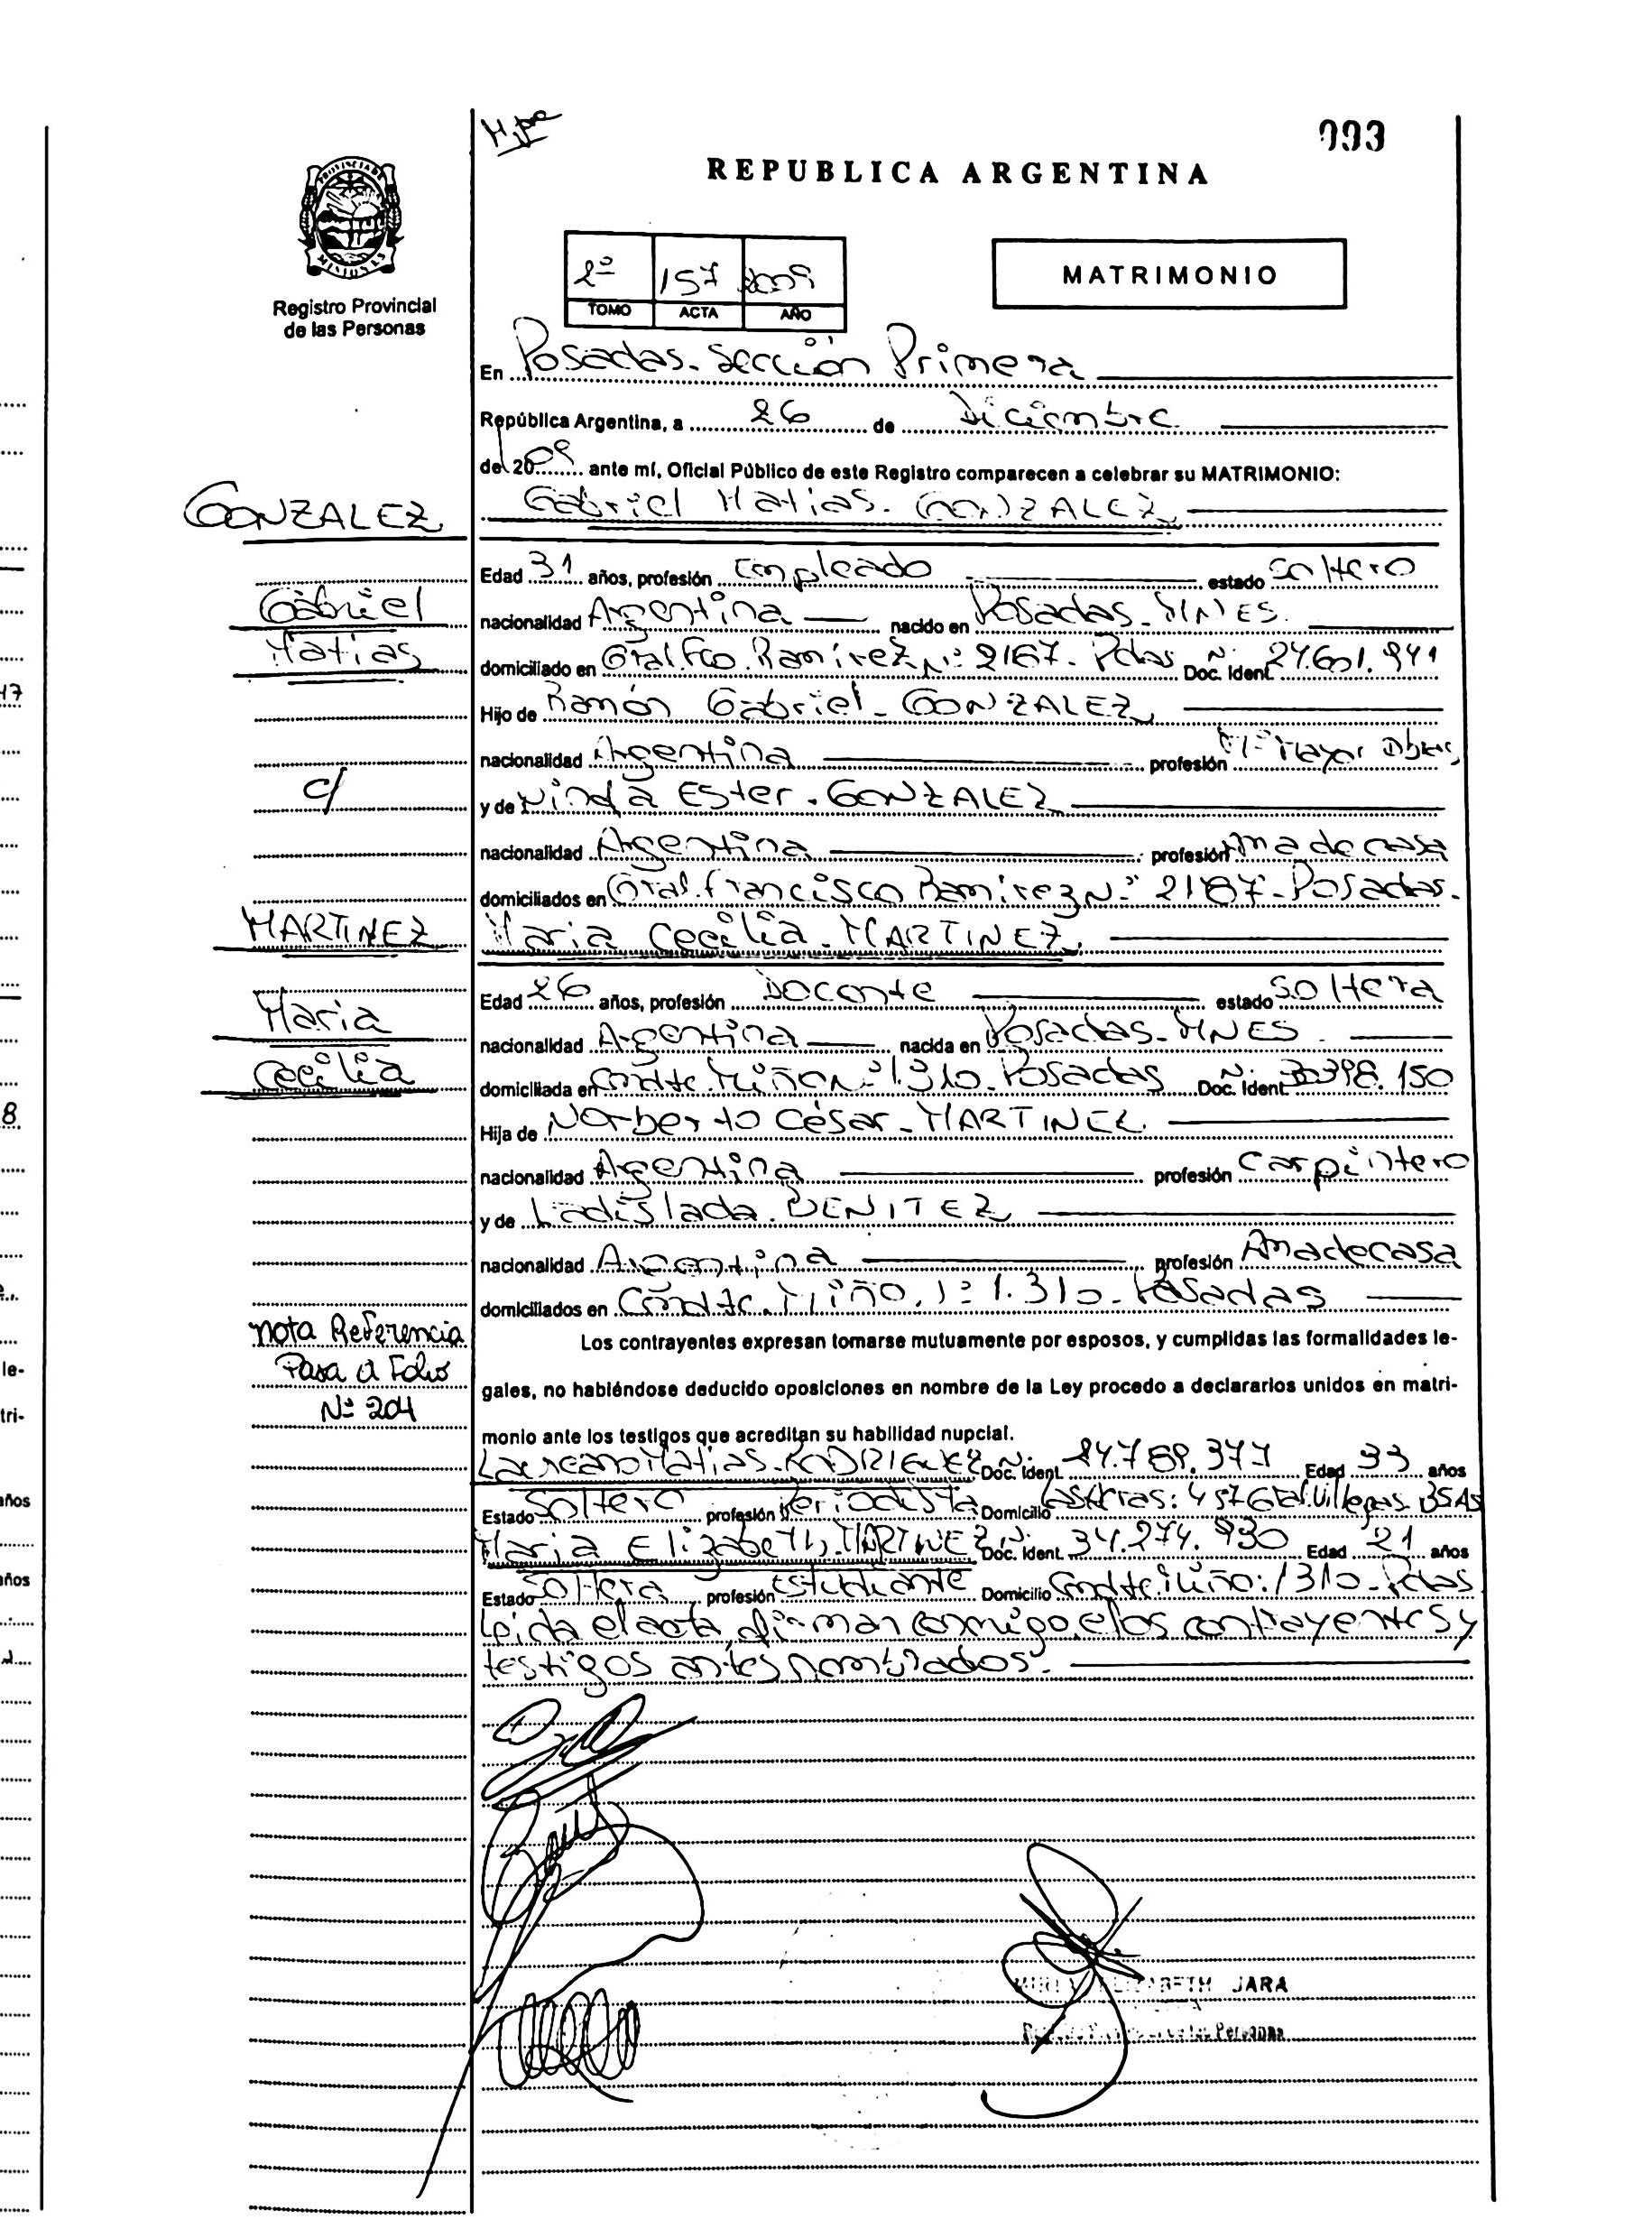 093
REPUBLICA ARGENTINA
PROVINCIA DE
MISIONES
Registro Provincial
de las Personas
2º 157 2009
TOMO ACTA AÑO
MATRIMONIO
En Posadas. Sección Primera
República Argentina, a 26 de Diciembre
del 2009 ante mí, Oficial Público de este Registro comparecen a celebrar su MATRIMONIO:
GONZALEZ
Gabriel Matias. GONZALEZ
Edad 31 años, profesión Empleado estado Soltero
Gabriel
nacionalidad Argentina nacido en Posadas. MNES.
Matias
domiciliado en Gral. Fco. Ramírez Nº 2167. Pdas Doc. Ident. Nº
Hijo de Ramón Gabriel. GONZALEZ
nacionalidad Argentina profesión Mayor
c/
y de Ester. GONZALEZ
nacionalidad Argentina profesión Ama de casa
domiciliados en Gral. Francisco Ramirez Nº 2167. Posadas.
MARTINEZ
Maria Cecilia. MARTINEZ.
Edad 26 años, profesión Docente estado Soltera
Maria
nacionalidad Argentina nacida en Posadas. MNES.
Cecilia
domiciliada en Cmdte. Miño Nº 1.310. Posadas Doc. Ident. Nº 30.398.150
Hija de Norberto César. MARTINEZ
nacionalidad Argentina profesión Carpintero
y de Ladislada. BENITEZ
nacionalidad Argentina profesión Ama de casa
domiciliados en Cmdte. Miño. Nº 1.310. Posadas
nota Referencia
Pasa a Folio
Nº 204
Los contrayentes expresan tomarse mutuamente por esposos, y cumplidas las formalidades le-
gales, no habiéndose deducido oposiciones en nombre de la Ley procedo a declararlos unidos en matri-
monio ante los testigos que acreditan su habilidad nupcial.
Laureano Matias. RODRIGUEZ Doc. Ident. Nº Edad 33 años
Estado Soltero profesión Periodista Domicilio Las Heras: 457 Gral. Villegas. BSAS
Maria Elizabeth. MARTINEZ Doc. Ident. Nº 34.274.930 Edad 21 años
Estado Soltera profesión Estudiante Domicilio Cmdte. Miño: 1310. Pdas
Leida el acta, firman conmigo, los contrayentes y
testigos antes nombrados.
JARA
Personas